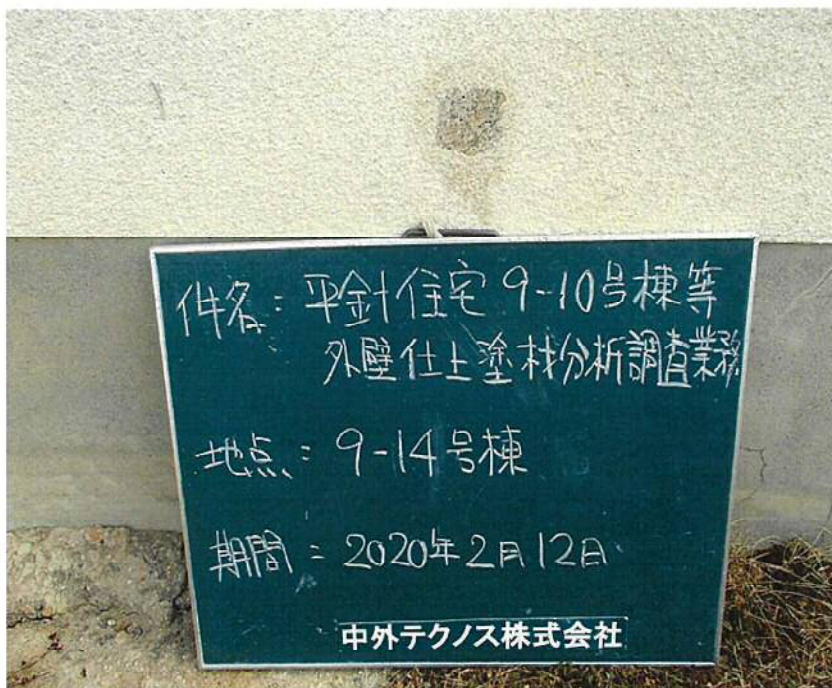 件名: 平針住宅 9-10号棟等
外壁仕上塗材分析調査業務
地点: 9-14号棟
期間: 2020年2月12日
中外テクノス株式会社